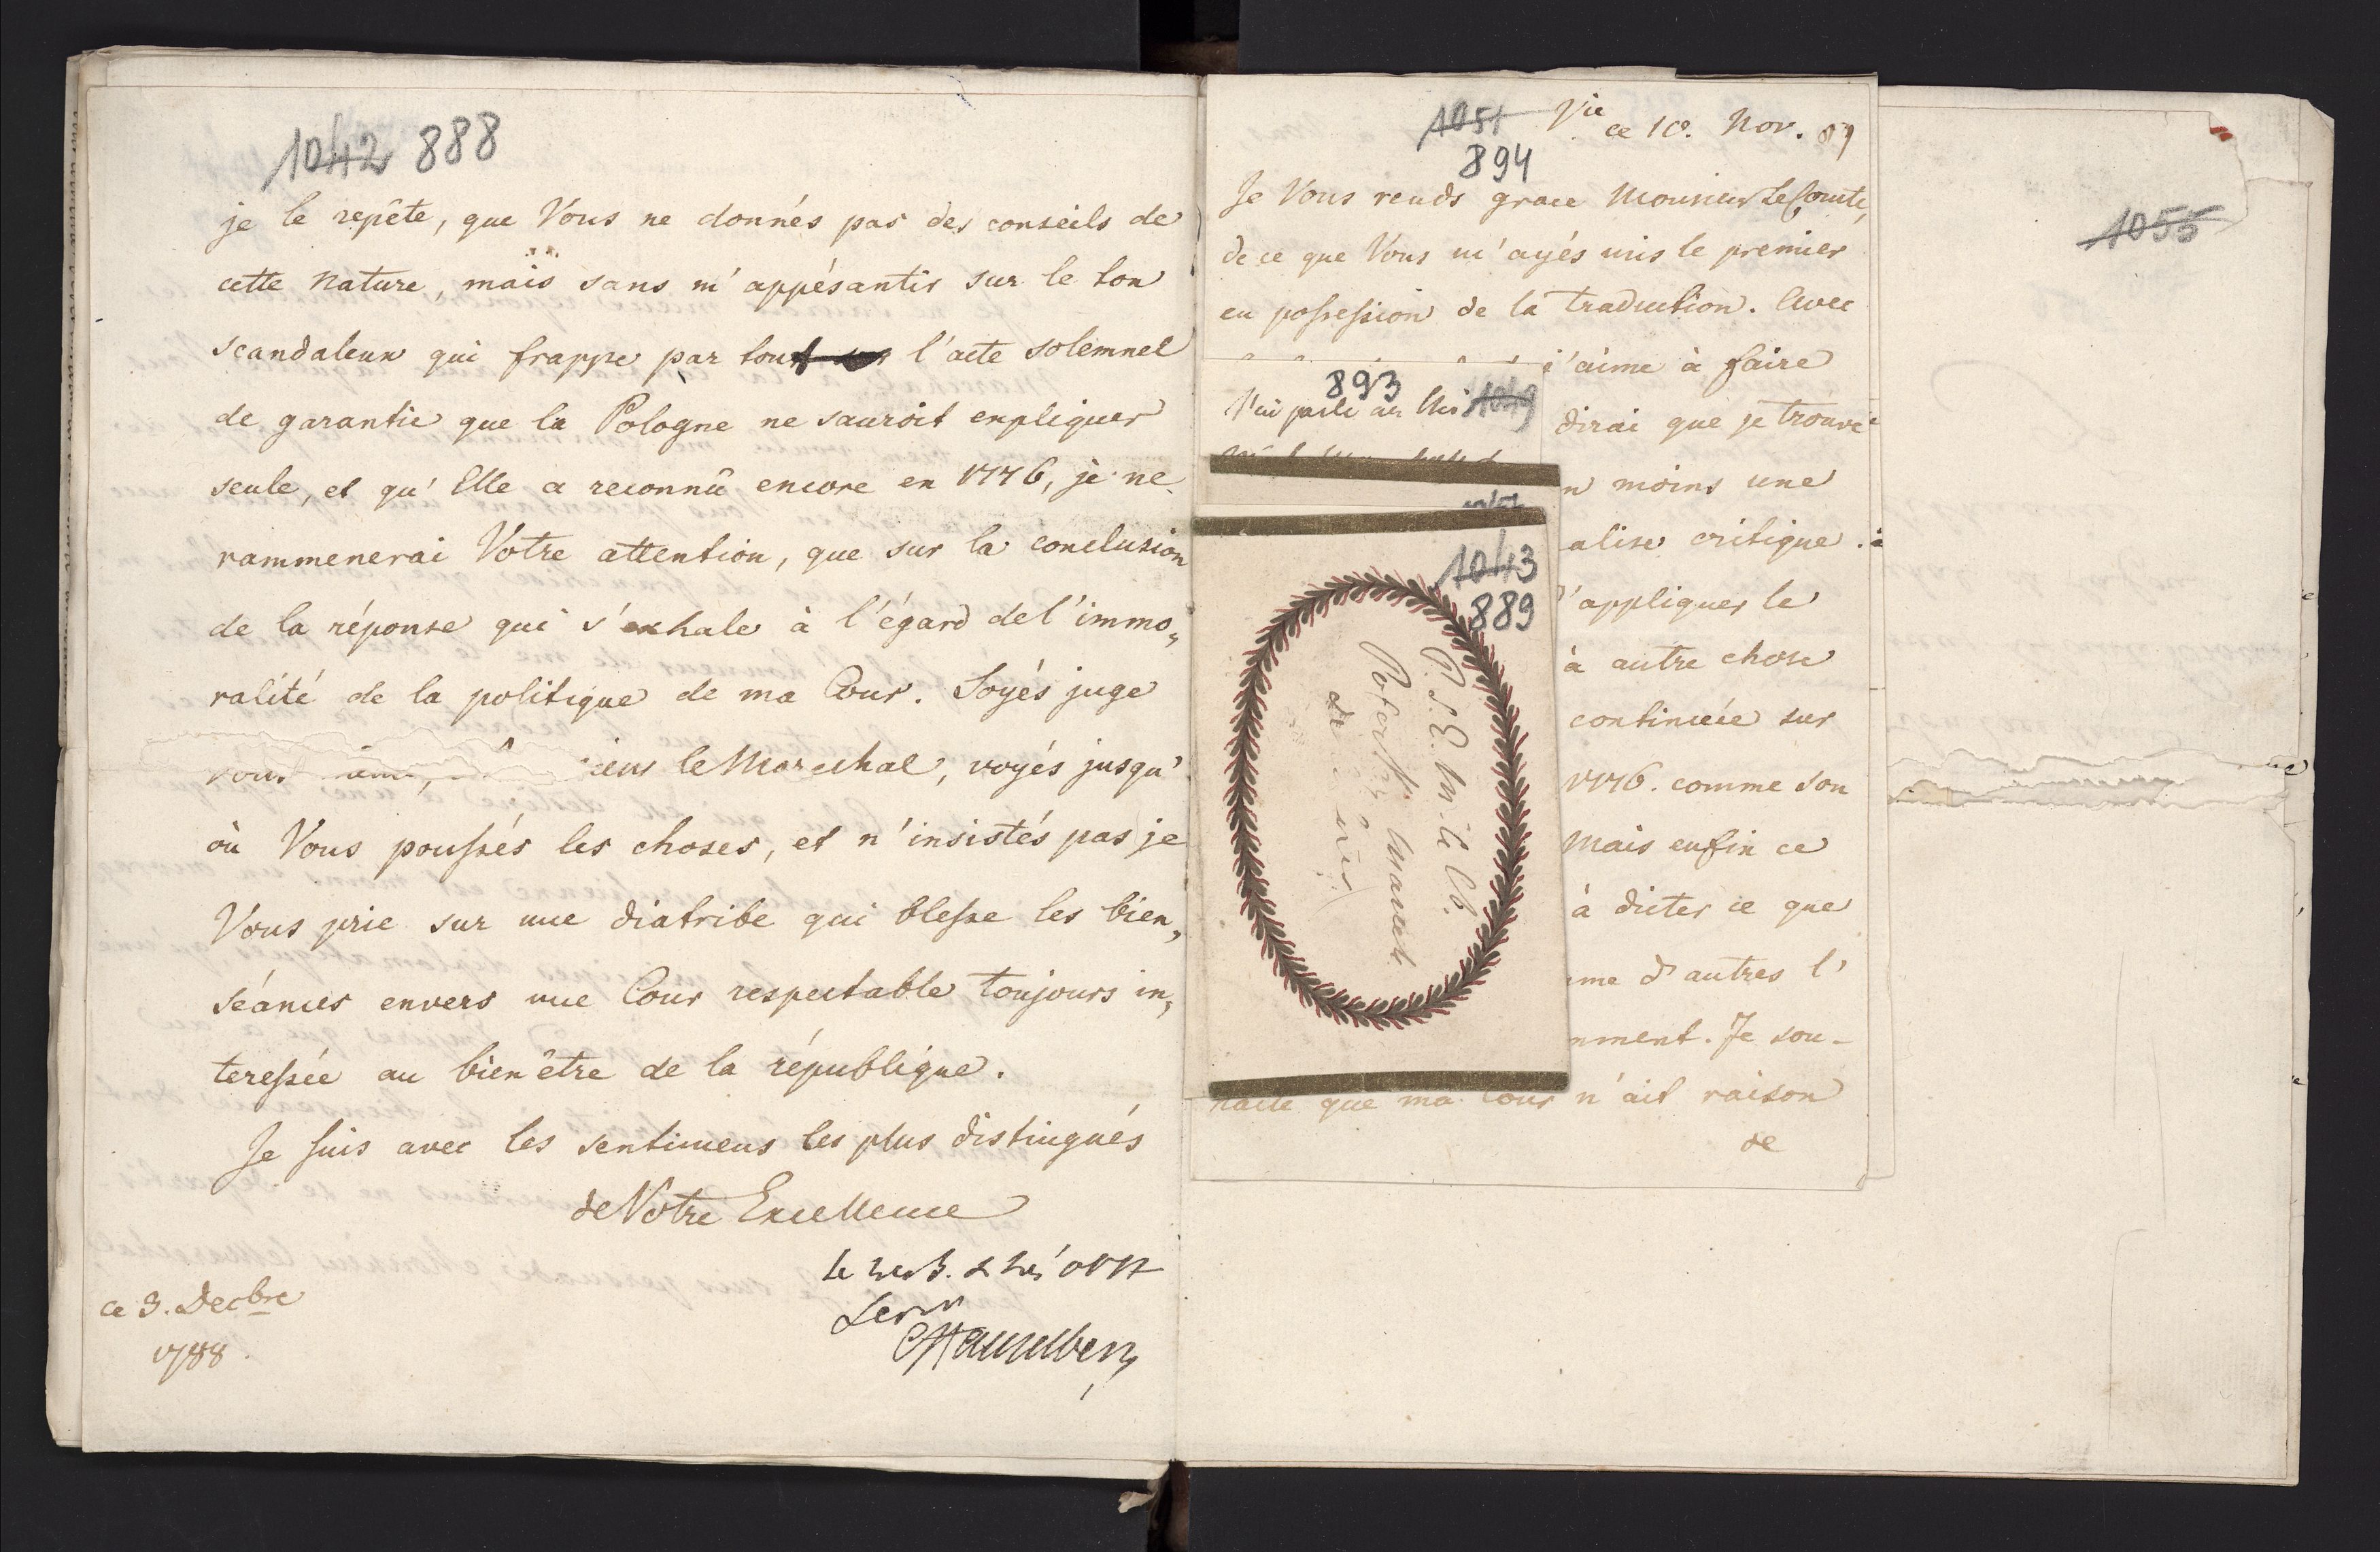 1042 888
je le repête, que Vous ne donnés pas des conseils de
cette Nature, mais sans m'appésantir sur le ton
scandaleux qui frappe par tout l'acte solemnel
de garantie que la Pologne ne sauroit expliquer
seule, et qu'Elle a reconnû encore en 1776, je ne
rammenerai Votre attention, que sur la conclusion
de la réponse qui s'exhale à l'égard de l'immo„
ralité de la politique de ma Cour. Soyés juge
vous le Marechal, voyés jusqu'
où Vous poussés les choses, et n'insistés pas je
Vous prie sur une diatribe qui blesse les bien„
séances envers une Cour respectable toujours in„
teressée au bien être de la république.
Je suis avec les sentimens les plus distingués
de Votre Excellence
ce 3. Decbre
1788.
1051
ce 10. Nov. 89
894
Je Vous rends grace Monsieur le Comte,
de ce que Vous m'ayés mis le premier
en possession de la traduction. Avec
j'aime à faire
893
1049
dirai que je trouve
n moins une
alise critique.
1043
889
P. S. E. Mr. le Ct.
Potocki Marech.
'appliquer le
à autre chose
continuée sur
1776. comme son
Mais enfin ce
à dicter ce que
me d'autres l'
mment. Je sou-
haite que ma Cour n'ait raison
de
1055